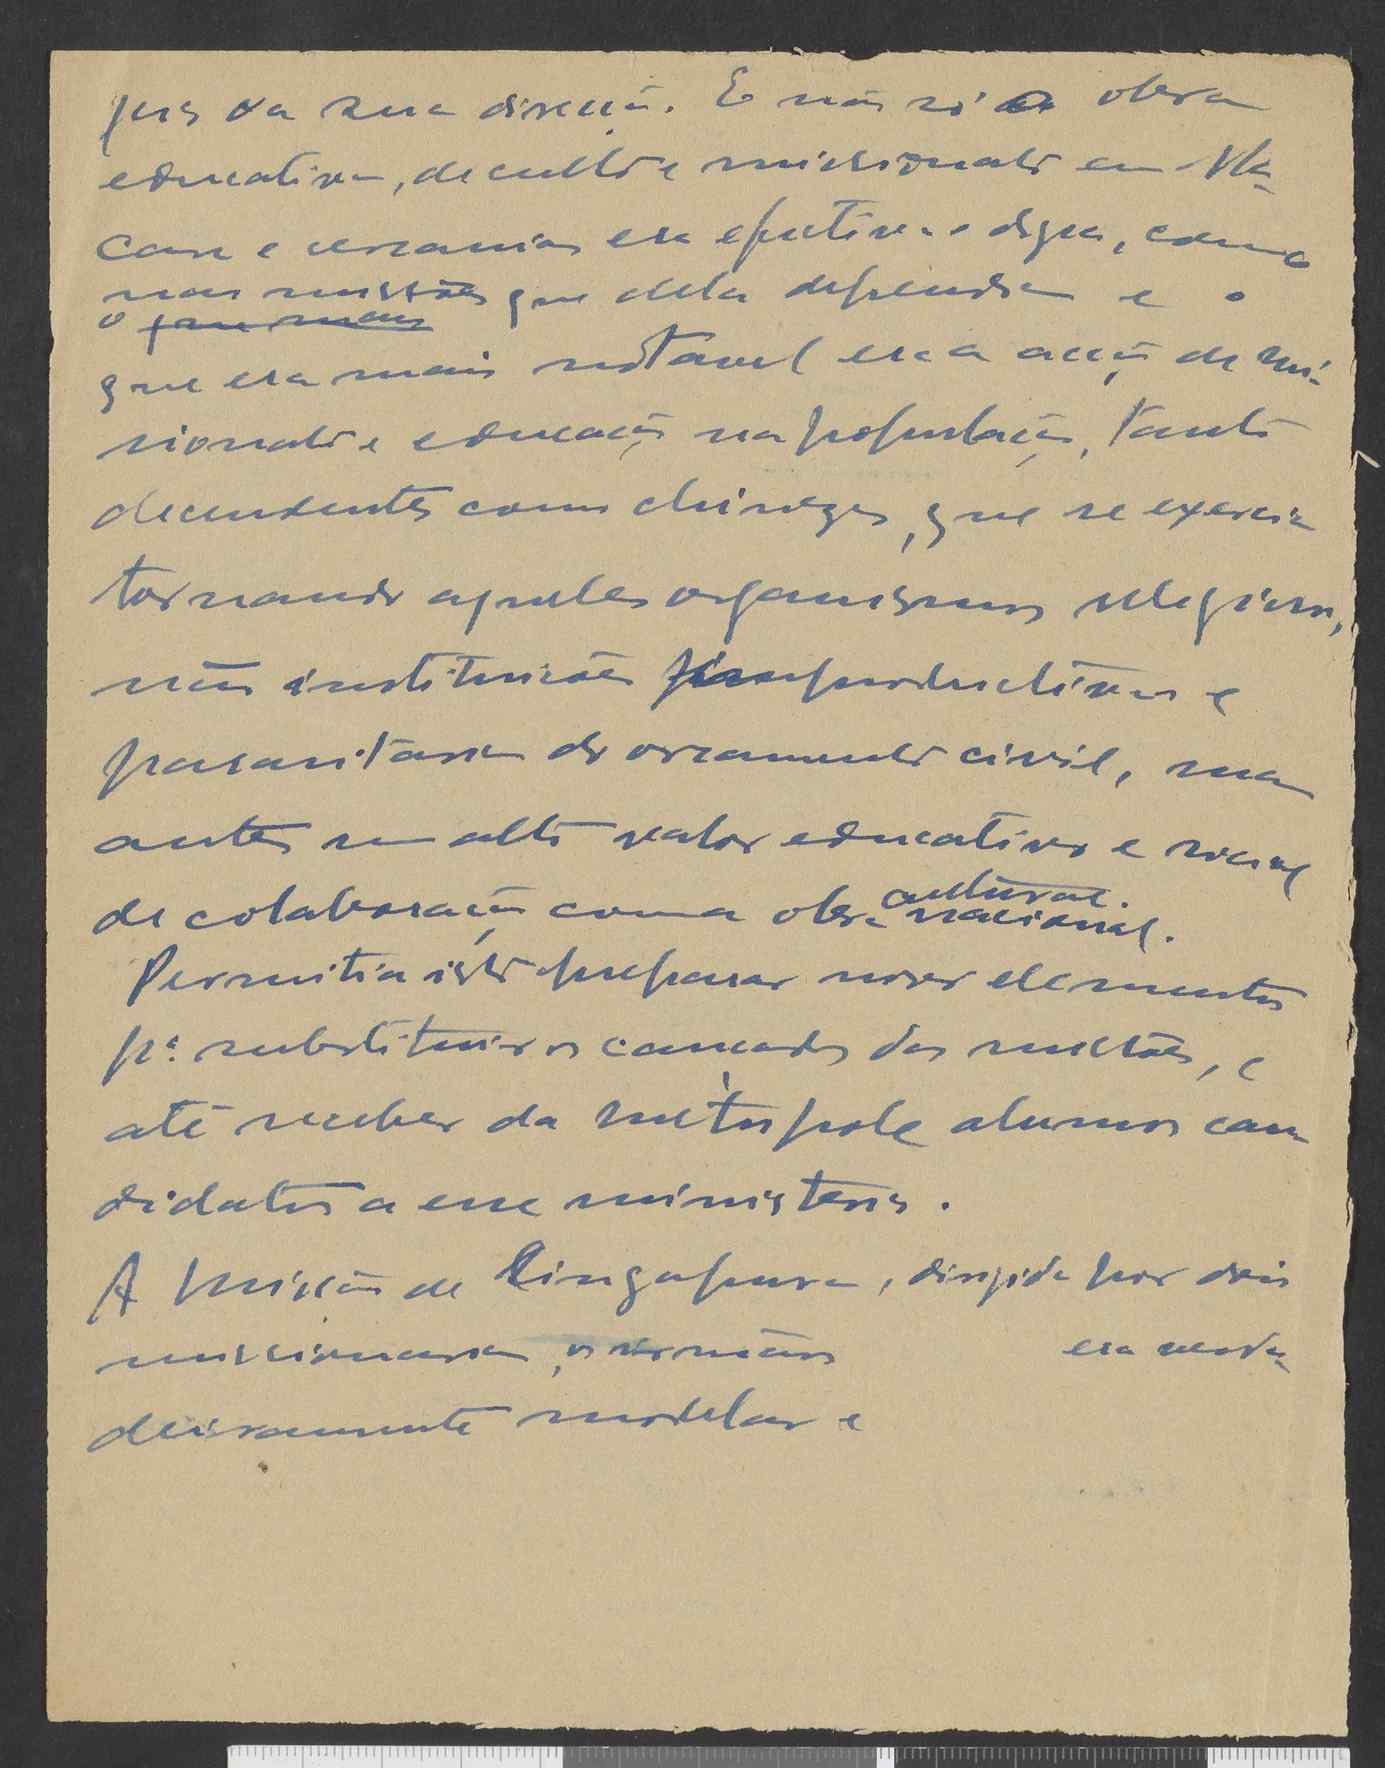 da sua direcção. E não só a obra
educativa, de culto e missionato em Ma-
cau e cercanias era efectiva e digna, como
nas missões que dela dependiam e o
o que mais
que era mais notavel era a acção de mi-
sionato e educação na população, tanto
decendentes como chinezes, que se exercia
tornando aqueles organismos religiosos,
não instituições improductivas e
parasitarias do orçamento civil, mas
antes um alto valor educativo e social
de colaboração com a obra cultural.
nacional.
Permitia isto preparar novos elementos
pª. substituir os cançados das missões, e
até receber da métropole alunos can-
didatos a esse ministerio.
A Missão de Singapura, dirigida por dois
missionarios, os irmãos era verda-
deiramente modelar e